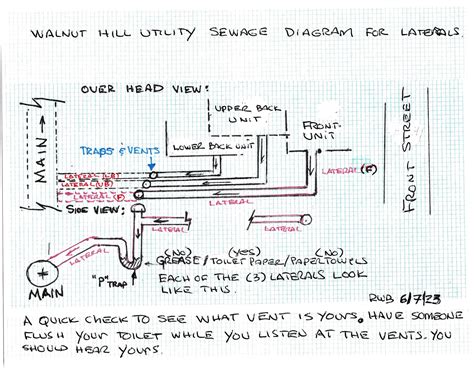 WALNUT HILL UTILITY SEWAGE DIAGRAM FOR LATERALS.
OVER HEAD VIEW:
UPPER BACK
UNIT
LOWER BACK UNIT
FRONT-
UNIT
FRONT STREET
MAIN
TRAPS & VENTS
LATERAL (LB)
LATERAL (UB)
LATERAL (F)
LATERAL (F)
SIDE VIEW:
LATERAL
LATERAL
LATERAL
MAIN
"P" TRAP
(NO) (YES) (NO)
GREASE/TOILET PAPER/PAPER TOWELS
EACH OF THE (3) LATERALS LOOK
LIKE THIS.
RWB 6/7/23
A QUICK CHECK TO SEE WHAT VENT IS YOURS. HAVE SOMEONE
FLUSH YOUR TOILET WHILE YOU LISTEN AT THE VENTS. YOU
SHOULD HEAR YOURS.